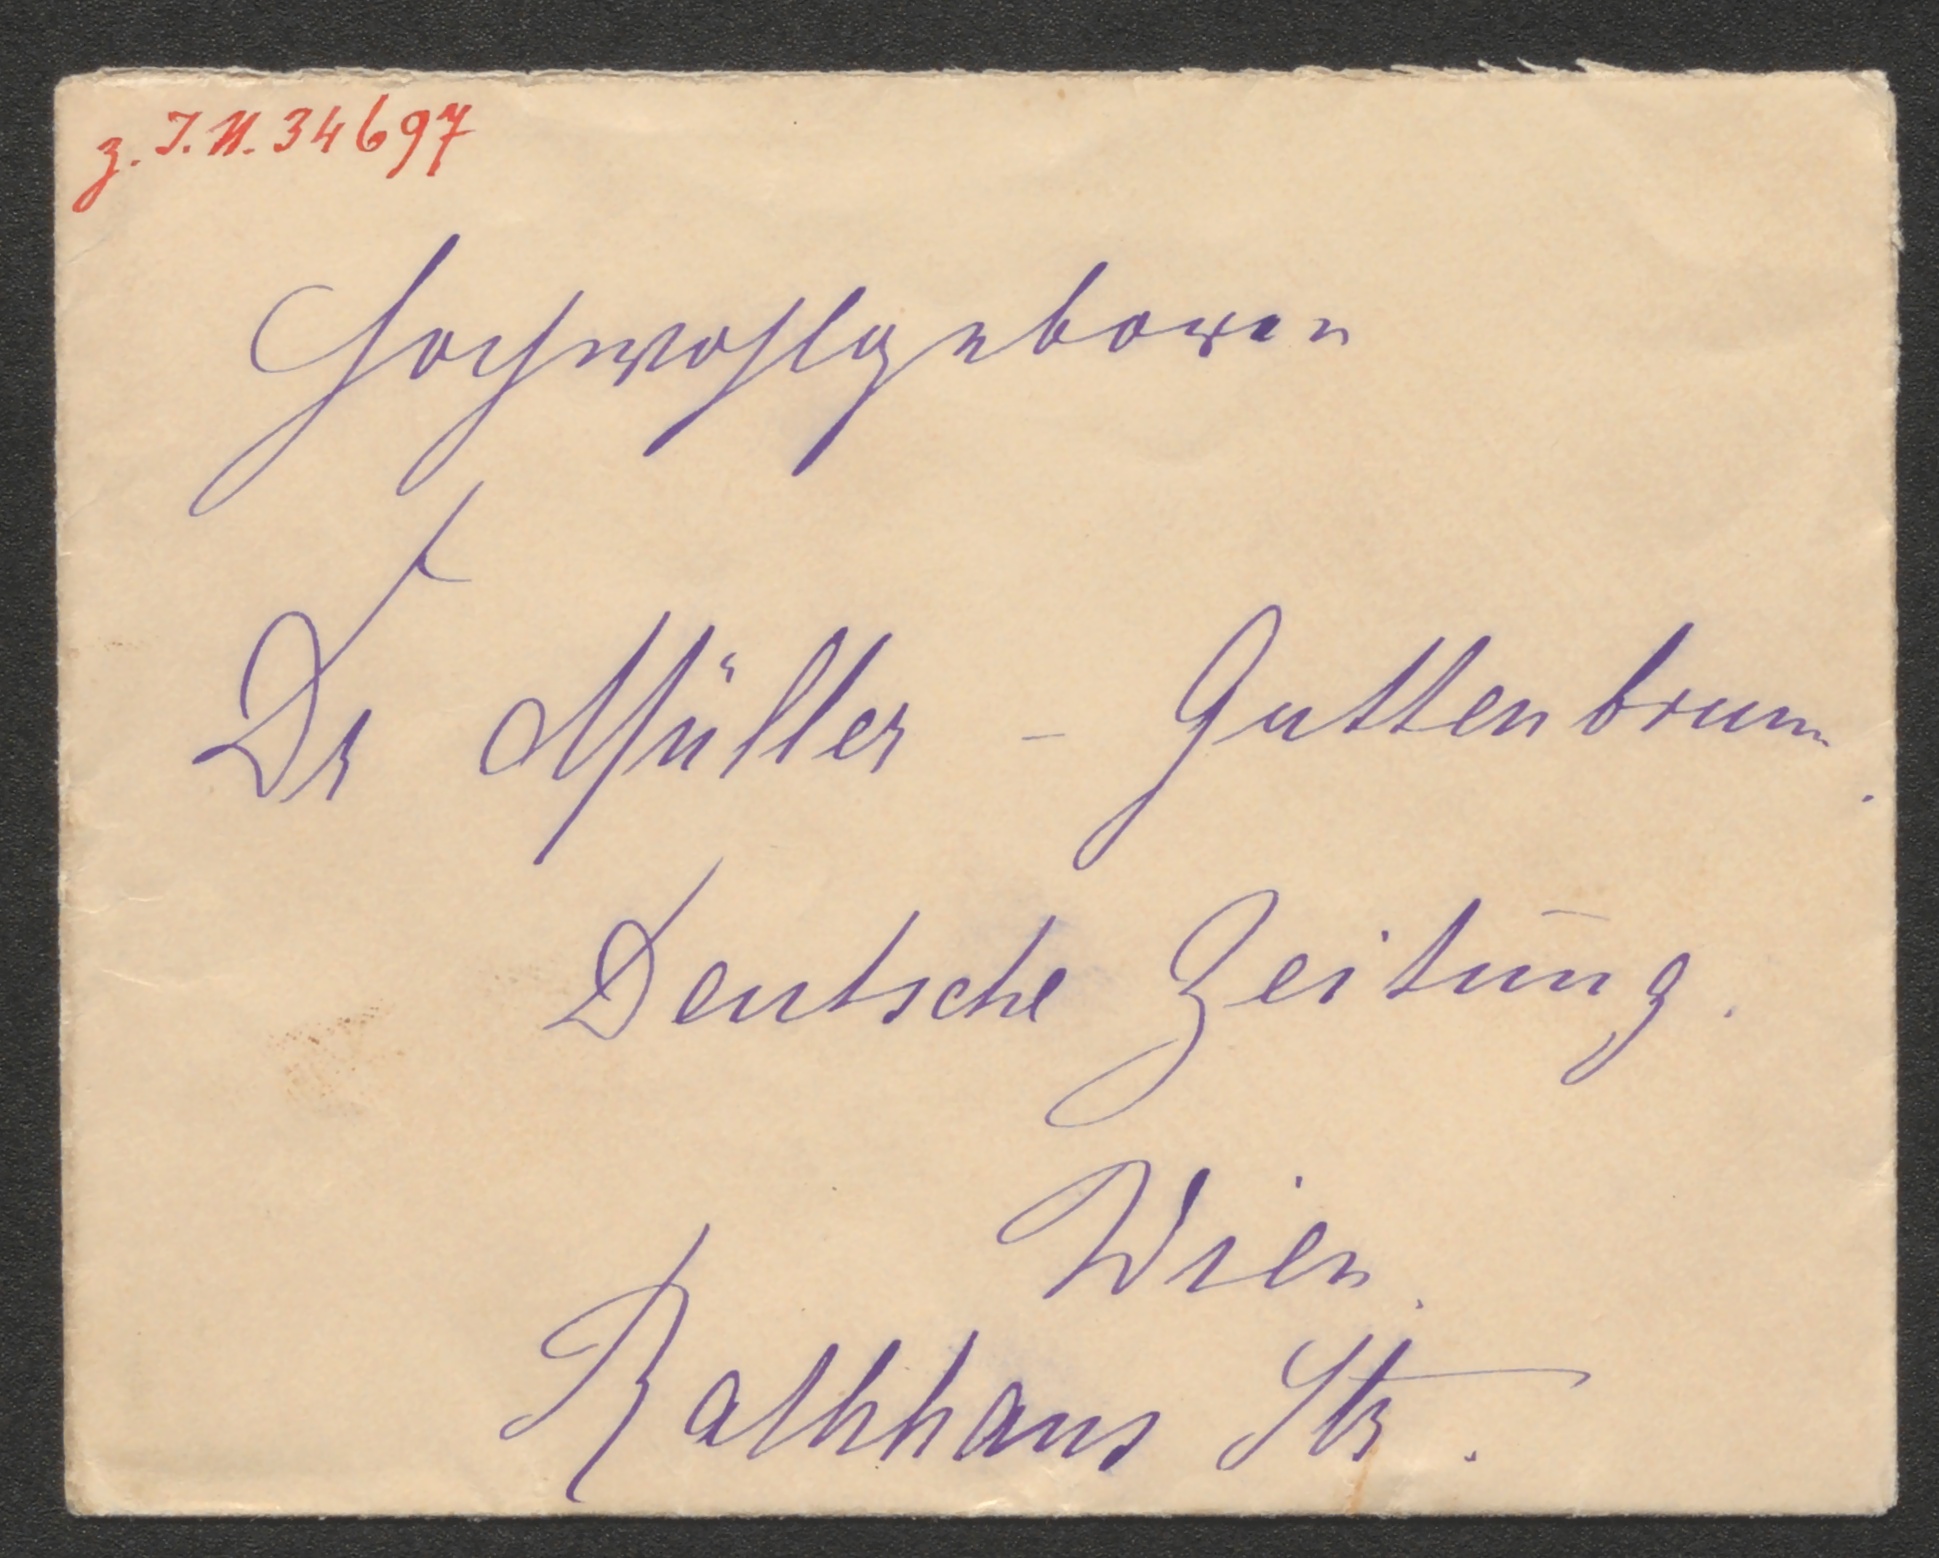 z. I.N. 34697
Hochwohlgeboren
Dr Müller - Guttenbrunn.
Deutsche Zeitung.
Wien.
Rathhaus Str.